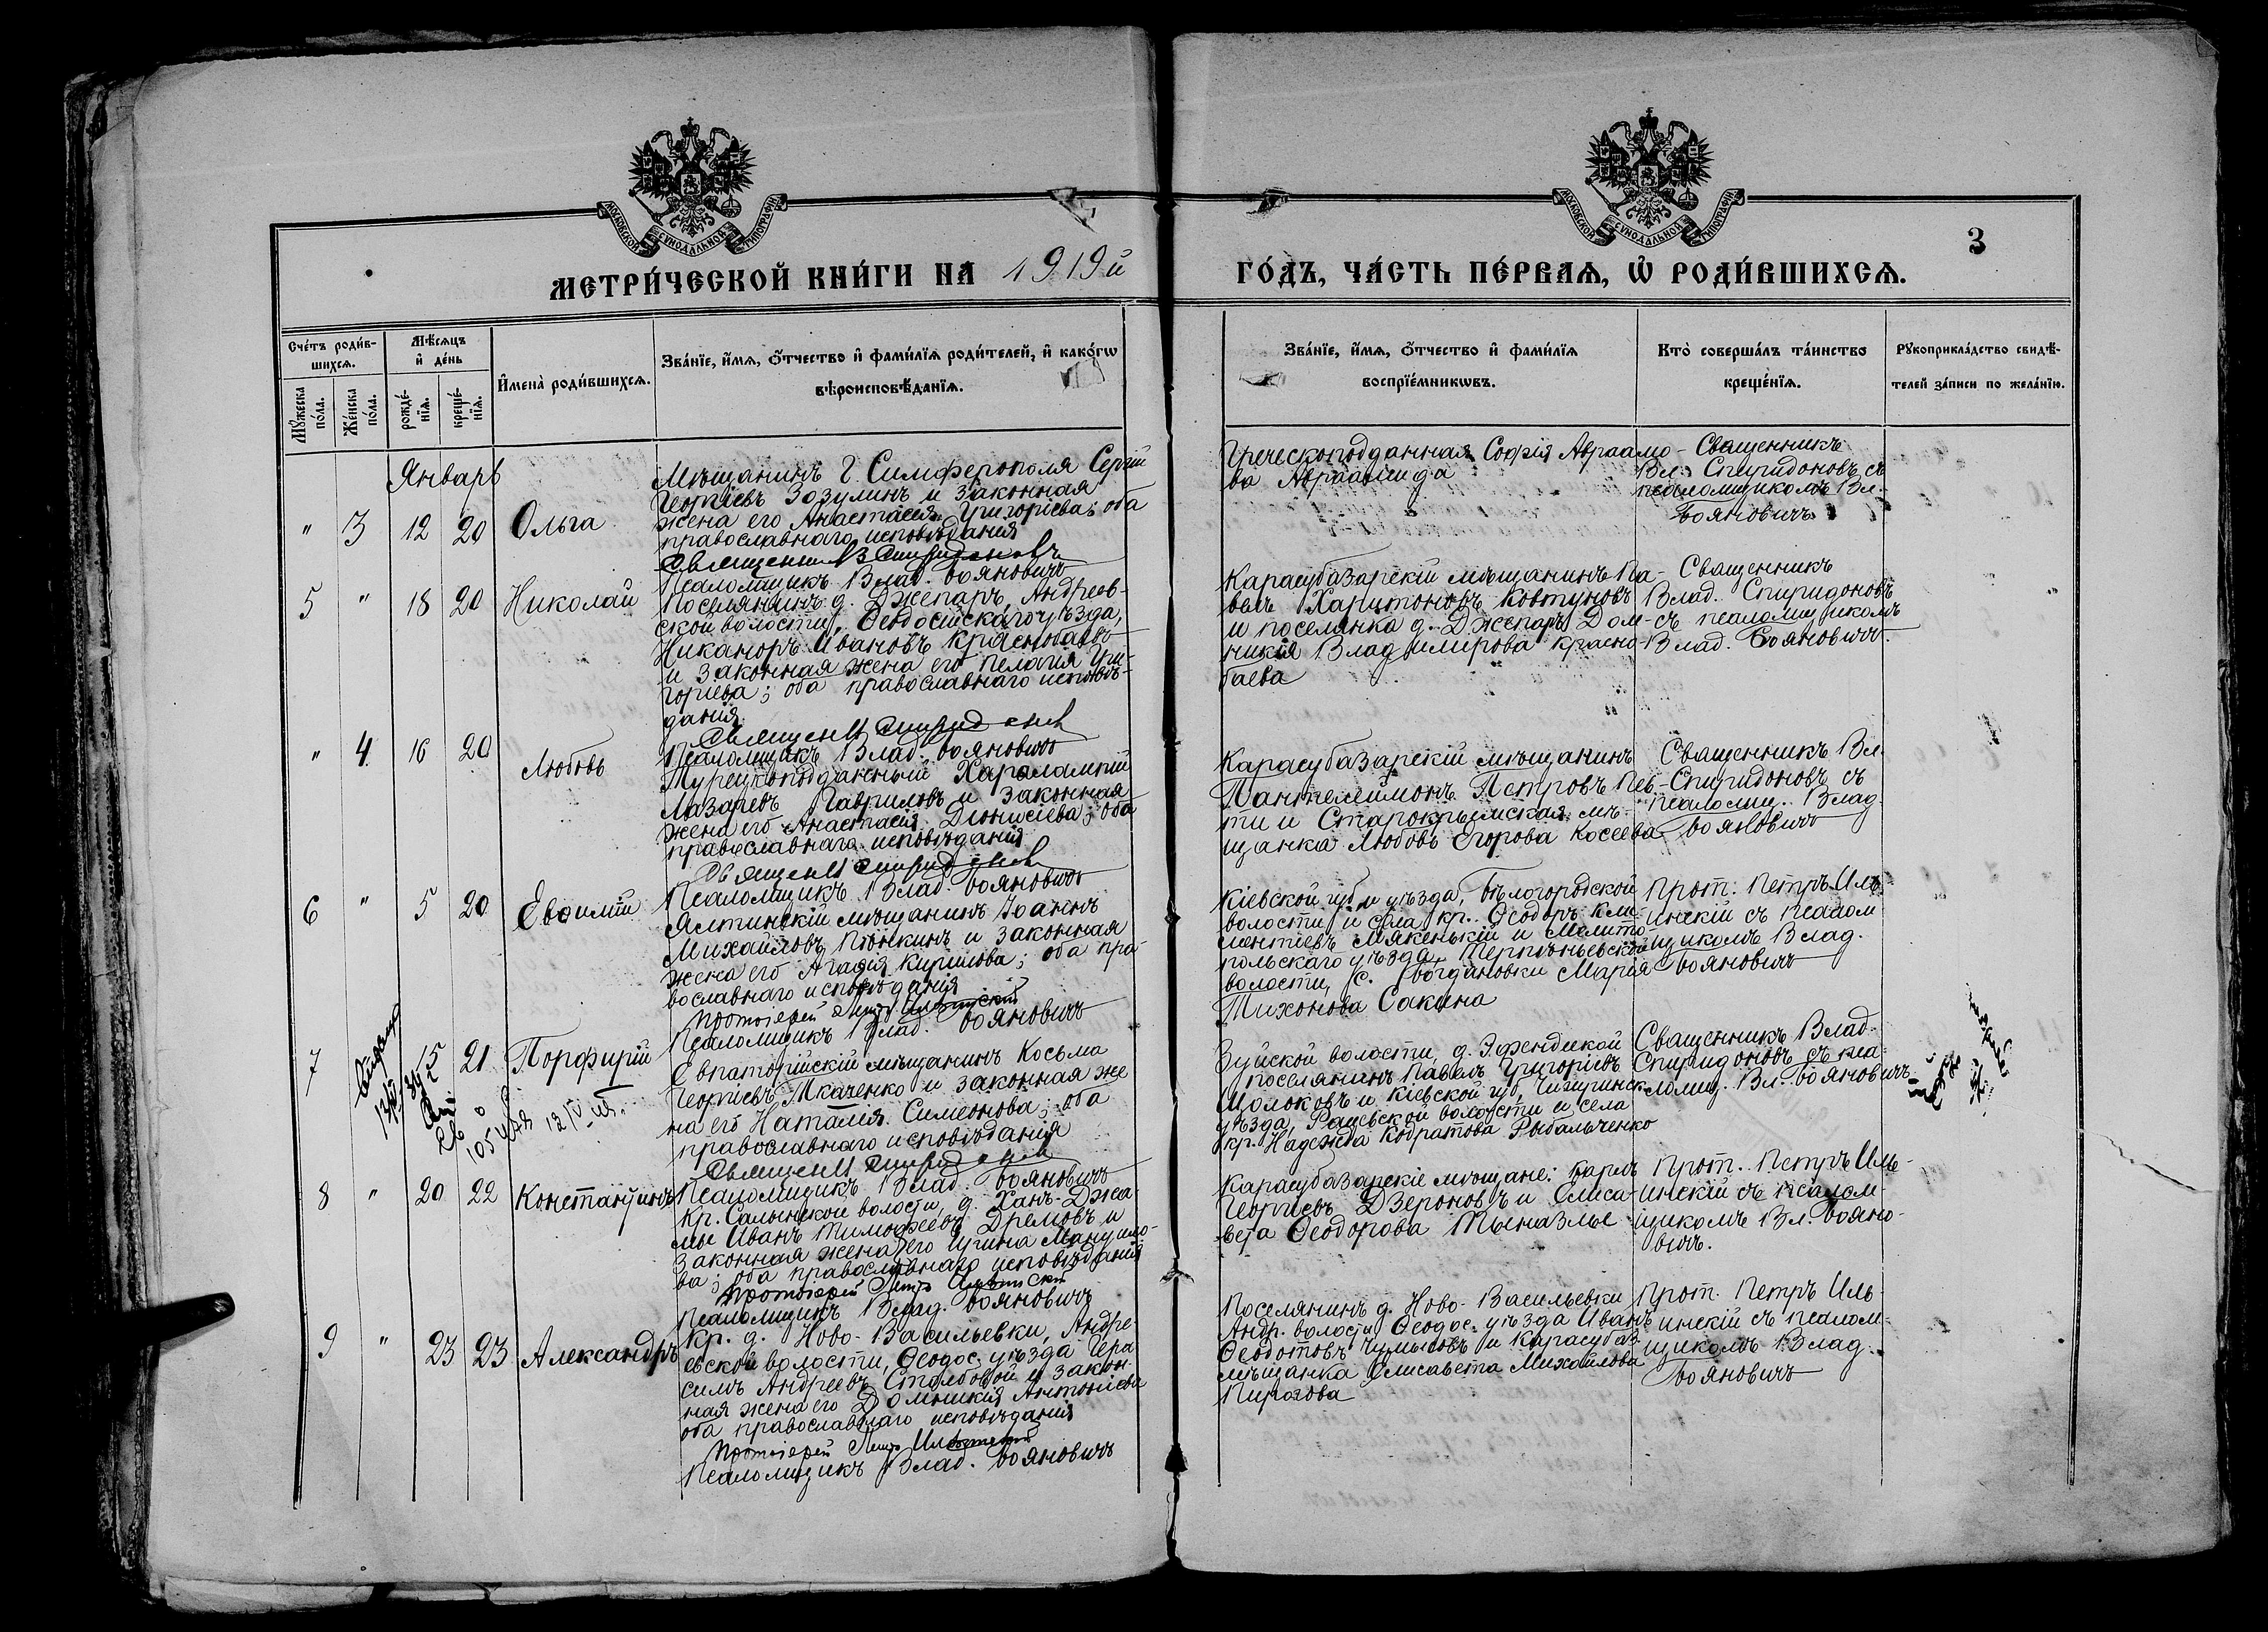 МОСКОВСКОЙ СѴНОДАЛЬНОЙ ТИПОГРАФІИ
МОСКОВСКОЙ СѴНОДАЛЬНОЙ ТИПОГРАФІИ
3
МЕТРИ́ЧЕСКОЙ КНИ́ГИ НА 1919й ГО́ДЪ, ЧА́СТЬ ПЕ́РВАѦ, Ѽ РОДИ́ВШИХСѦ.
Сче́тъ роди́в-
шихсѧ.
Мꙋ́жеска
по́ла.
Же́нска
по́ла.
Мѣ́сѧцъ
и҆ де́нь
рожде́-
нїѧ.
креще́-
нїѧ.
И҆мена̀ роди́вшихсѧ.
Зва́нїе, и҆́мѧ, ѻ҆́тчество и҆ фами́лїѧ роди́телей, и҆ како́гѡ
вѣроисповѣ́данїѧ.
Зва́нїе, и҆́мѧ, ѻ҆́тчество и҆ фами́лїѧ
воспрїе́мникѡвъ.
Кто̀ соверша́лъ та́инство
креще́нїѧ.
Рꙋкоприкла́дство свидѣ́-
телей за́писи по жела́нїю.
Январь
" 3 12 20 Ольга
Мѣщанинъ г. Симферополя Сергій
Георгіевъ Зозулинъ и законная
жена его Анастасія Григоріева; оба
православнаго исповѣданія
Священ. В Спиридоновъ
Псаломщикъ Влад. Бояновичъ
Греческоподданная Софія Авраамо-
ва Авраамида
Священникъ
Вл. Спиридоновъ съ
псаломщикомъ Вл.
Бояновичъ
5 " 18 20 Николай
Поселянинъ д. Джепаръ, Андреев-
ской волости, Ѳеодосійскаго уѣзда,
Никаноръ Ивановъ Краснобаевъ
и законная жена его Пелагія Гри-
горіева; оба православнаго исповѣ-
данія.
Священ. Спиридонов
Псаломщикъ Влад. Бояновичъ
Карасубазарскій мѣщанинъ Па-
велъ Харитоновъ Ковтуновъ
и поселянка д. Джепаръ Дом-
никія Владимирова Красно-
баева
Священникъ
Влад. Спиридоновъ
съ псаломщикомъ
Влад. Бояновичъ.
" 4 16 20 Любовь
Турецкоподданный Харалампій
Лазаревъ Гавриловъ и законная
жена его Анастасія Діонисіева; оба
православнаго исповѣданія
Священ. Спиридонов
Псаломщикъ Влад. Бояновичъ
Карасубазарскій мѣщанинъ
Пантелеймонъ Петровъ
ти и Старокрымская мѣ-
щанка Любовь Егорова Косеева
Священникъ Вл.
Спиридоновъ съ
псаломщ. Влад.
Бояновичъ
6 " 5 20 Евѳимій
Ялтинскій мѣщанинъ Іоаннъ
Михайловъ Пѣнкинъ и законная
жена его Агаѳія Кирилова; оба пра-
вославнаго исповѣданія
Протоіерей Петръ Ильинскій
Псаломщикъ Влад. Бояновичъ
Кіевской губ. и уѣзда, Бѣлогородской
волости и села кр. Ѳеодоръ Кли-
ментіевъ Мякенькій и Мелито-
польскаго уѣзда, Терпѣньевской
волости, с. Богдановки Марія
Тихонова Сакина
Прот. Петръ Иль-
инскій съ псалом-
щикомъ Влад.
Бояновичъ
7 15 21 Порфирій
12 IV
Евпаторійскій мѣщанинъ Косьма
Георгіевъ Ткаченко и законная же
на его Наталія Симеонова; оба
православнаго исповѣданія
Священ. Спиридонов
Псаломщикъ Влад. Бояновичъ
Зуйской волости, д. Эфендикой
поселянинъ Павелъ Григоріевъ
Молоковъ и Кіевской губ, Чигиринск.
уѣзда, Рашевской волости и села
кр. Надежда Кодратова Рыбальченко
Священникъ Влад.
Спиридоновъ съ пса-
ломщ. Вл. Бояновичъ
8 " 20 22 Константинъ
Кр. Салынской волости, д. Ханъ-Джа-
мы Иванъ Тимоѳеевъ Дремовъ и
законная жена его Ирина Мануило-
ва; оба православнаго исповѣданія
Протоіерей Петръ Ильинскій
Псаломщикъ Влад. Бояновичъ
Карасубазарскіе мѣщане: Карлъ
Георгіевъ Дзероновъ и Елиса-
вета Ѳеодорова
Прот. Петръ Иль-
инскій съ псалом-
щикомъ Вл. Бояно-
вичъ.
9 " 23 23 Александръ
Кр. д. Ново-Васильевки, Андре-
евской волости, Ѳеодос. уѣзда Гера
симъ Андреевъ Столбовой и закон-
ная жена его Домникія Антоніева
оба православнаго исповѣданія
Протоіерей Петръ Ильинскій
Псаломщикъ Влад. Бояновичъ
Поселянинъ д. Ново-Васильевки
Андр. волости Ѳеодос. уѣзда Иванъ
Ѳеодотовъ Чумысовъ и Карасубаз
мѣщанка Елисавета Михайлова
Пирогова
Прот. Петръ Иль-
инскій съ псалом-
щикомъ Влад.
Бояновичъ